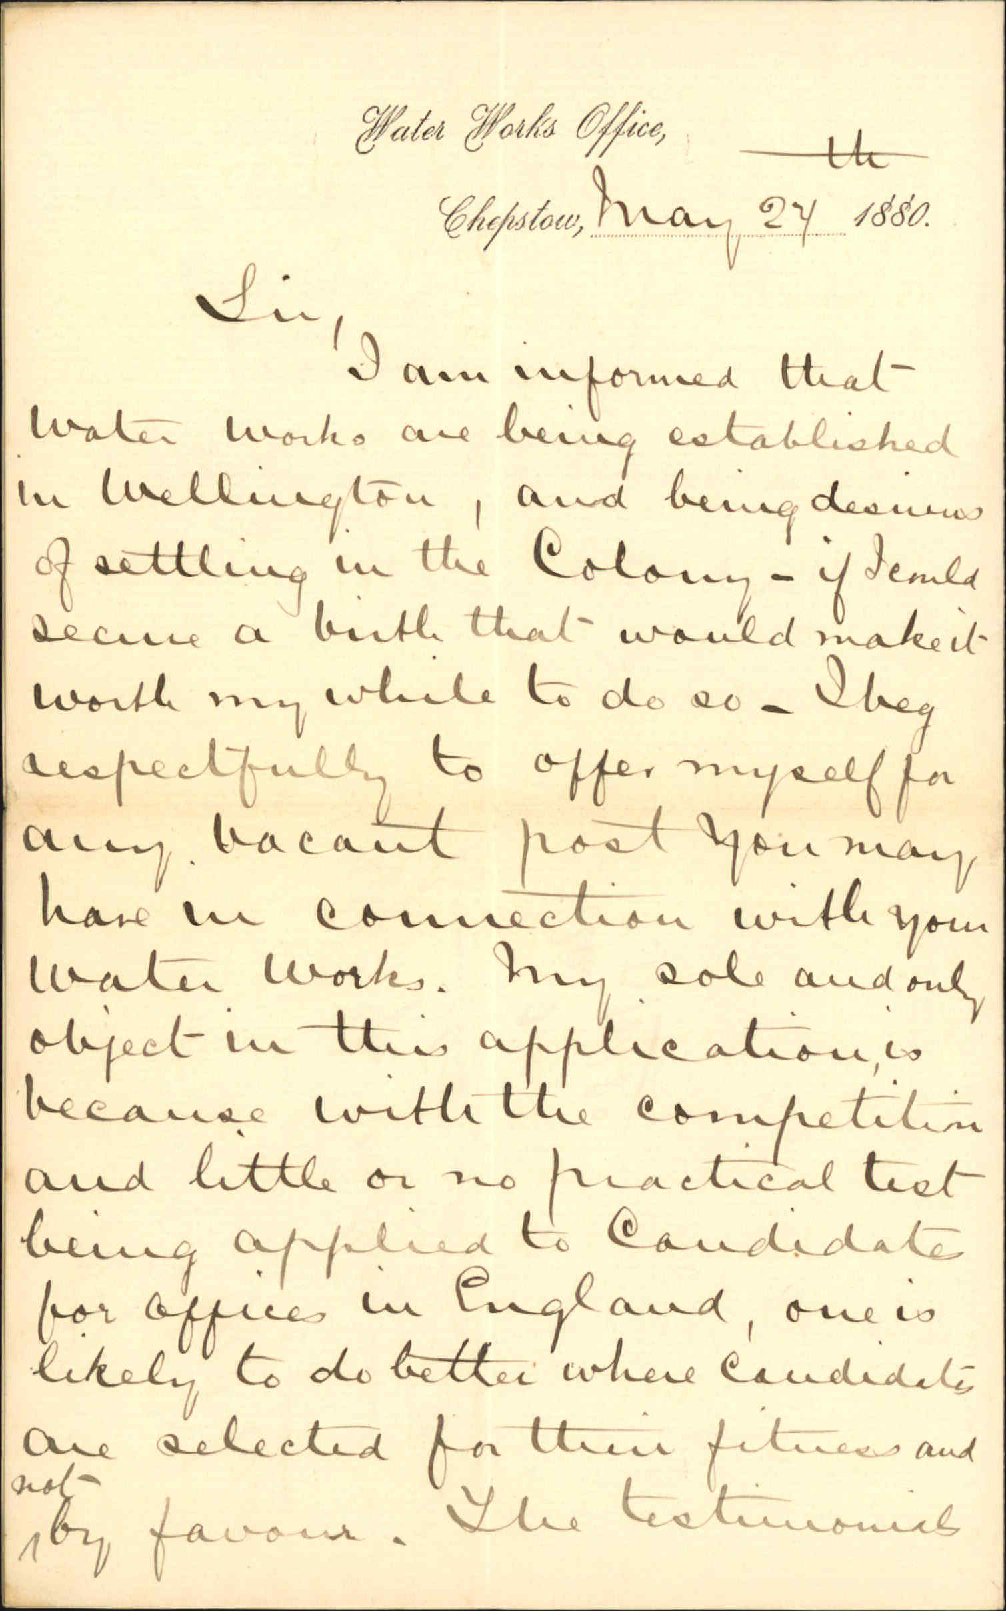 Water Works Office,
th
Chepstow, May 24 1880.
Sir,
I am informed that
Water works are being established
in Wellington, and being desirous
of settling in the Colony - if I could
secure a birth that would make it
worth my while to do so - I beg
respectfully to offer myself for
any vacant post you may
have in connection with your
Water Works. My sole and only
object in this application, is
because with the competition
and little or no practical test
being applied to Candidates
for offices in England, one is
likely to do better where Candidates
are selected for their fitness and
not
by favour. The testimonials